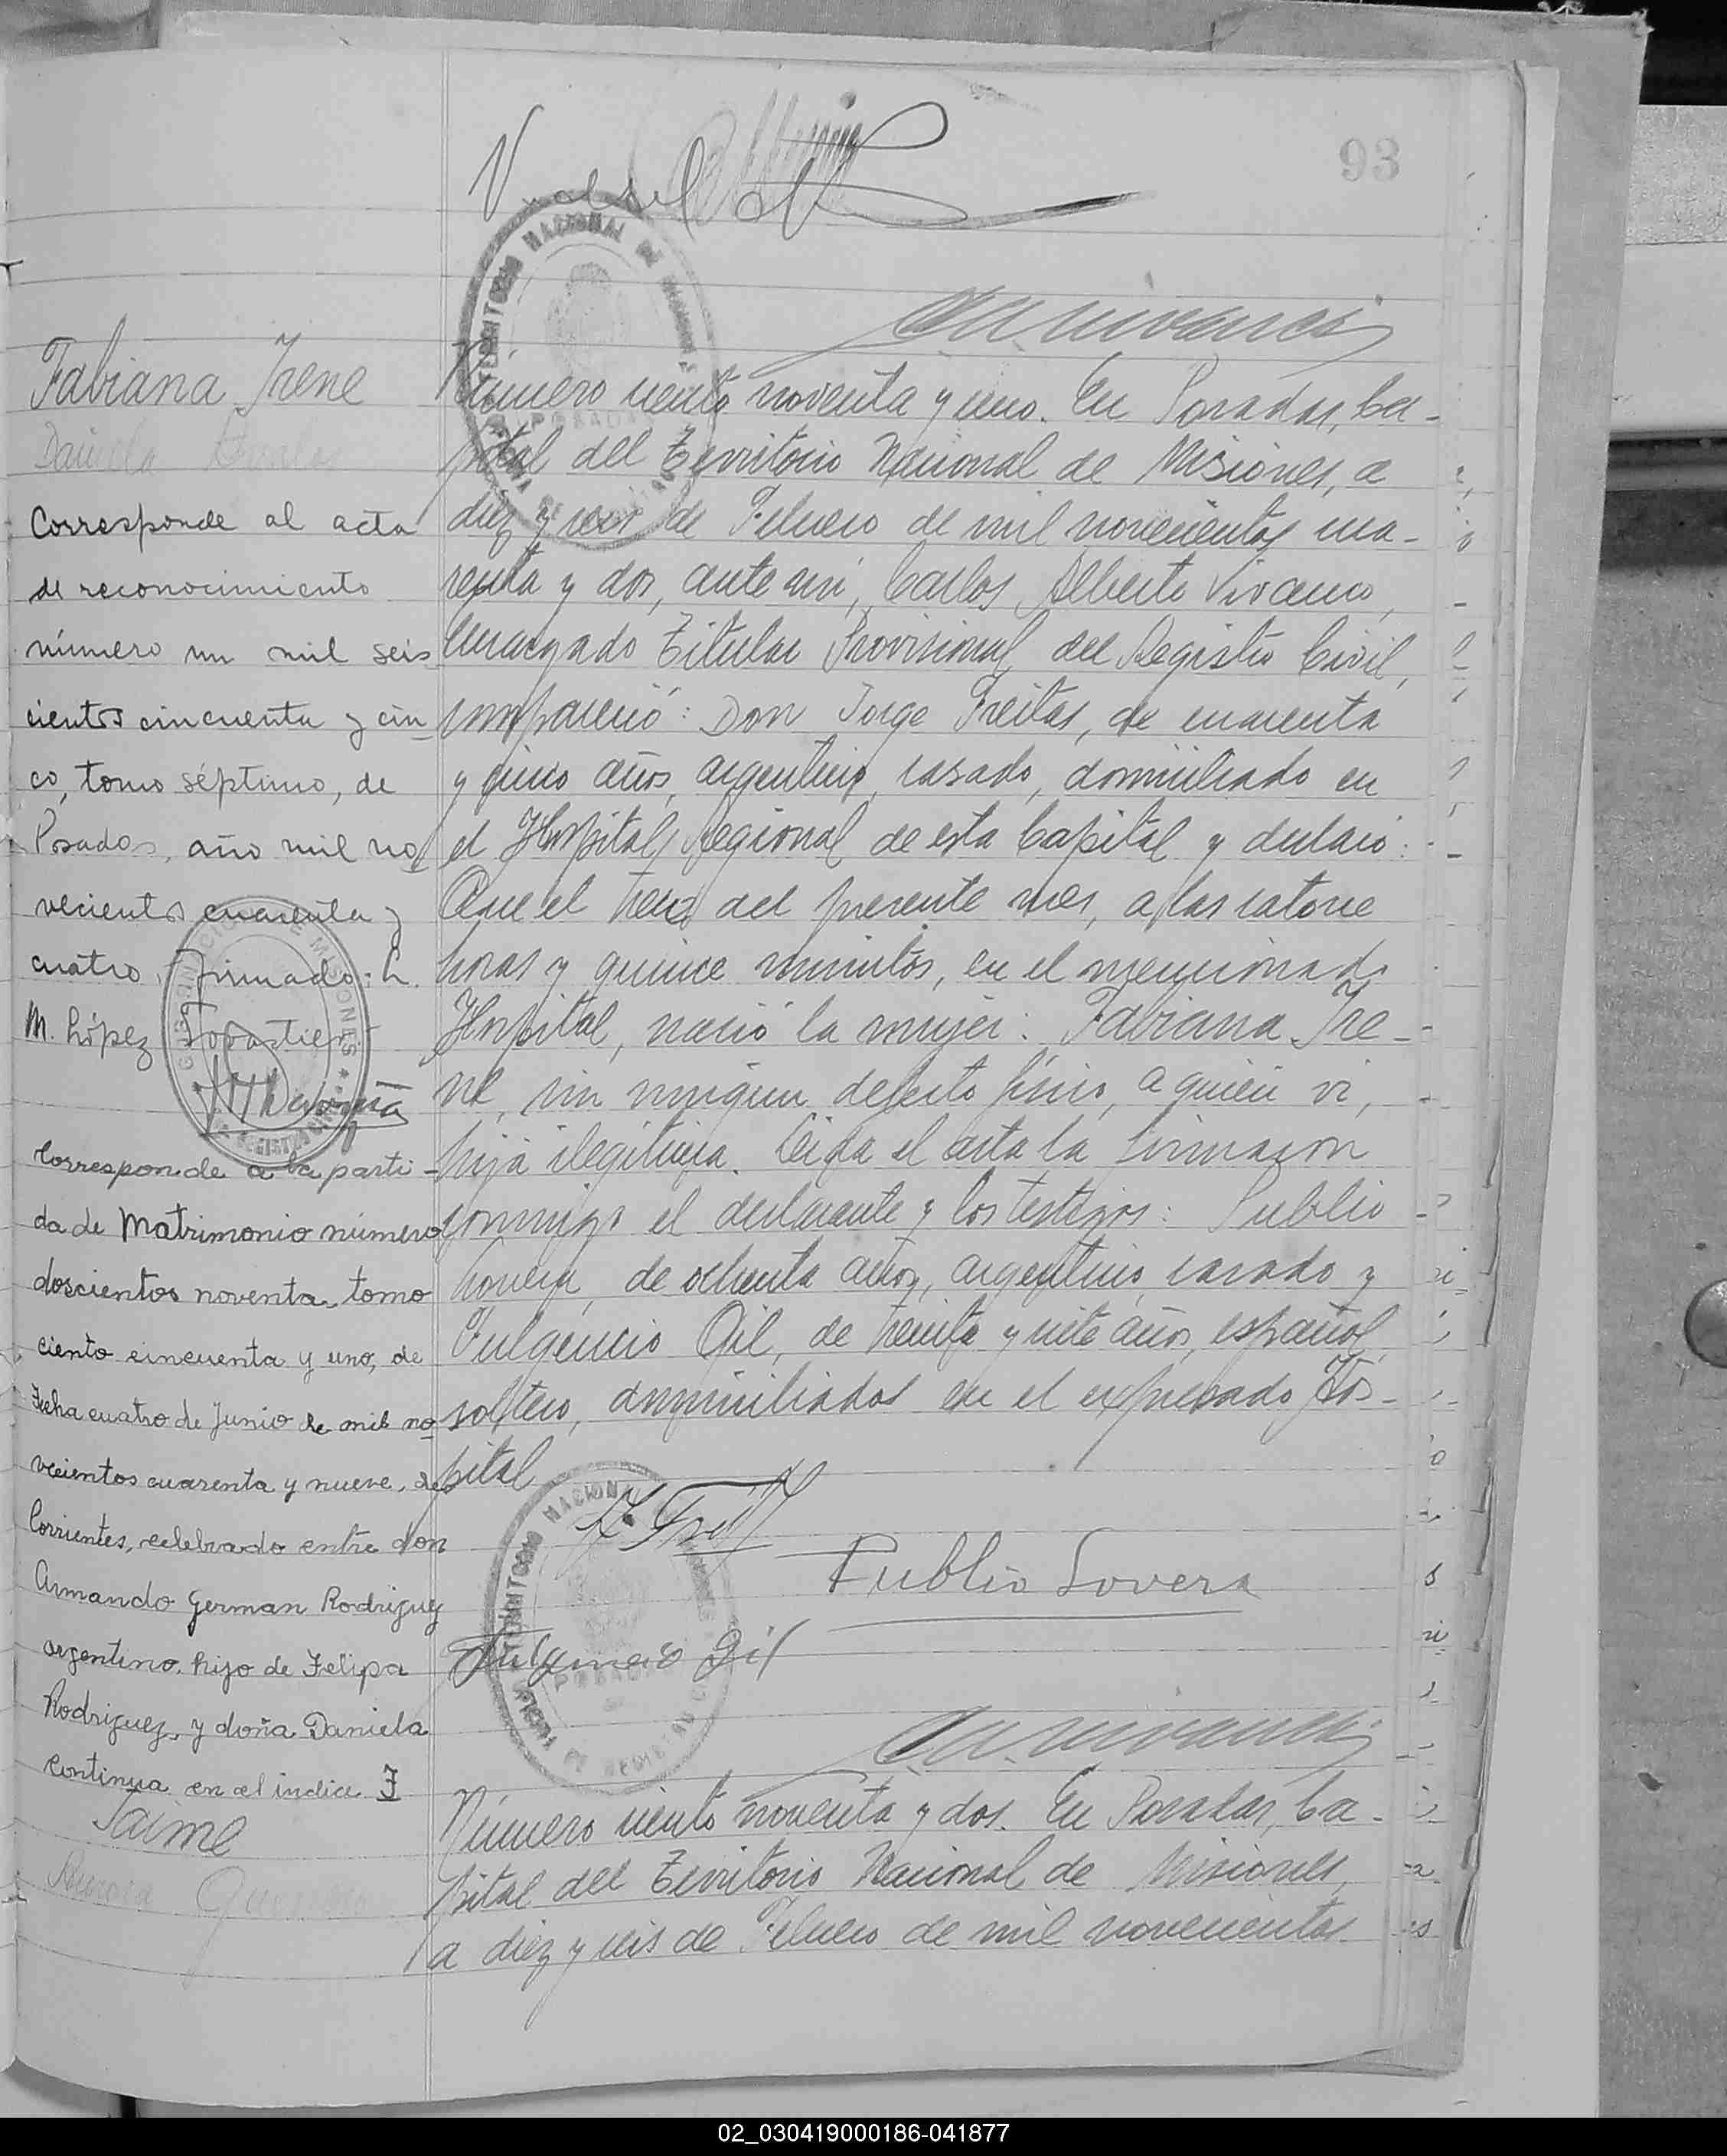 93
Fabiana Irene
Daniela
Corresponde al acta
de reconocimiento
número un mil seis
cientos cincuenta y cin
co, tomo séptimo, de
Posadas, año mil no
vecientos cuarenta y
cuatro. Firmado: L.
M. López
Corresponde a la parti-
da de Matrimonio número
doscientos noventa, tomo
ciento cincuenta y uno, de
Fecha cuatro de Junio de mil no
vecientos cuarenta y nueve, de
Corrientes, celebrado entre don
Armando German Rodriguez
argentino, hijo de Felipa
Rodriguez, y doña Daniela
continua en el indice F
Número ciento noventa y uno. En Posadas, Ca-
pital del Territorio Nacional de Misiones, a
diez y seis de Febrero de mil novecientos cua-
renta y dos, ante mi, Carlos Alberto Vivanco,
Encargado Titular Provisional del Registro Civil,
compareció: Don Jorge Freitas, de cuarenta
y cinco años, argentino, casado, domiciliado en
el Hospital Regional de esta Capital y declaró:
Que el trece del presente mes, a las catorce
horas y quince minutos, en el mencionado
Hospital, nació la mujer: Fabiana Ire-
ne, sin ningun defecto fisico, a quien vi,
hija ilegitima. Leida el acta la firmaron
conmigo el declarante y los testigos: Publio
Lovera, de ochenta años, argentino, casado y
Fulgencio Gil, de treinta y siete años, español,
soltero, domiciliados en el expresado Hos-
pital
Publio Lovera
Fulgencio Gil
Jaime
Número ciento noventa y dos. En Posadas, Ca-
pital del Territorio Nacional de Misiones,
a diez y seis de Febrero de mil novecientos
02_030419000186-041877